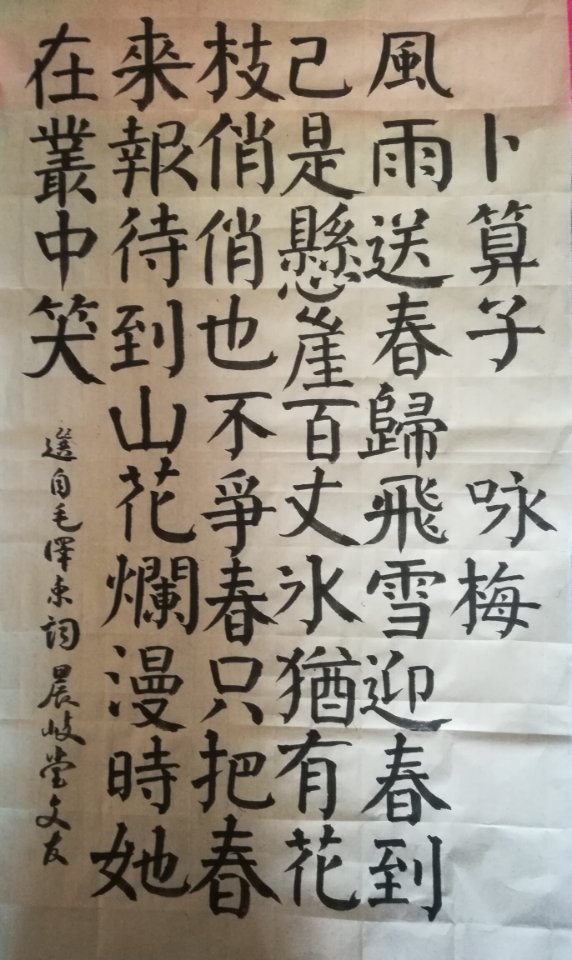 卜算子 咏梅
風雨送春歸飛雪迎春到
己是懸崖百丈氷猶有花
枝俏俏也不爭春只把春
來報待到山花爛漫時她
在叢中笑
選自毛澤東詞 晨岐堂文友